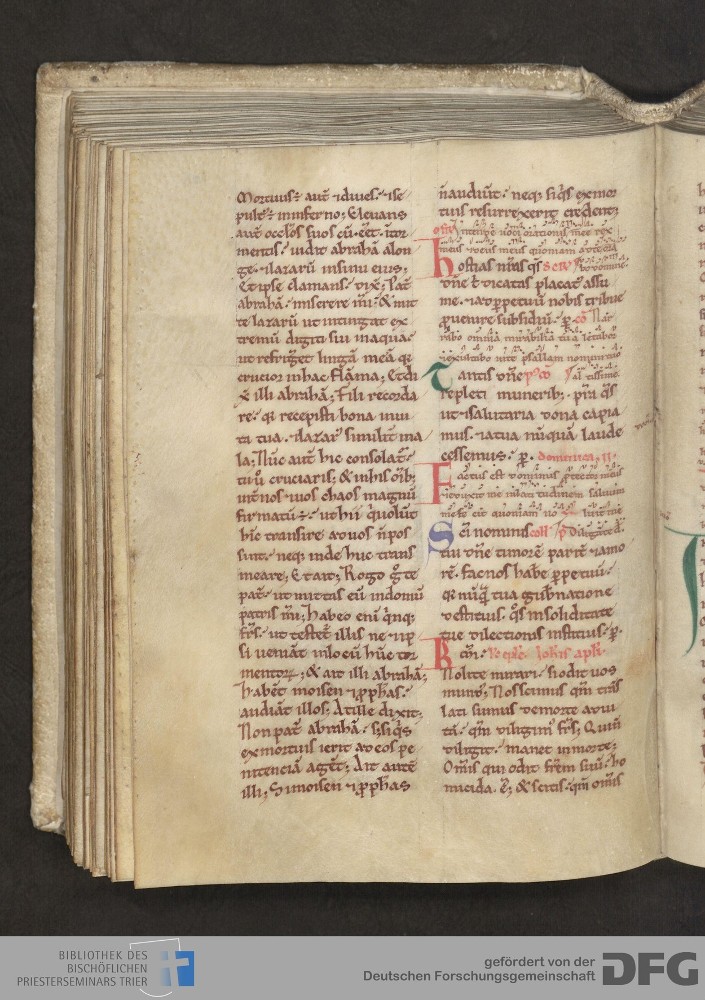 Mortuus ÷ aut̄ ⁊ diues. ⁊ se
pult᷒ ÷ in inferno; Eleuans
aut̄ oculos suos cū eēt in tor
mentis. uidit abrahā a lon
ge. ⁊ lazarū in sinu eius;
Et ipse clamans. dix̄; Pat̄
abrahā. miserere m̄i. & mit
te lazarū ut intingat ex
tremū digiti sui in aquā.
ut refriḡet linguā meā q̄
crucior in hac flāma; Et di
x̄ illi abrahā; Fili recorda
re. q̄ recepisti bona in ui
ta tua. ⁊ lazar᷒ similit̄ ma
la; Nuc aut̄ hic consolat᷒.
tu ū cruciaris; & in his oīb;
int̄ nos ⁊ uos chaos magnū
firmatū ÷. ut hii q̇ uolūt
hīc transire ad uos n̄ pos
sint. neq; inde huc trans
meare; Et ait; Rogo ḡ te
pat̄. ut mittas eū in domū
patris m̄i; habeo enī q̇nq;
fr̄s. ut testet᷒ illis ne ⁊ ip
si ueniāt in locū hūc tor
mentoꝝ; & ait illi abrahā;
habēt moisen ⁊ pp̄has.
audiāt illos; At ille dixit;
Non pat̄ abrahā. s; siq̇s
ex mortuis ierit ad eos pe
nitenciā agēt; Ait autē
illi; Si moisen ⁊ pp̄has
n̄ audiūt. neq; siq̇s ex mor
tuis resurrexerit credent;
off̄ Intende uoci orationis mee rex
meus ⁊ deus meus quoniam ad te
hostias n̄r̄as q̄s Secr̄ orabo domine
dn̄e t̄ dicatas placat᷒ assu
me. ⁊ ad p̱petuū nobis tribue
p̱uenire subsidiū. p̱. cō Nar
rabo omnia mirabilia tua letabor
⁊ exultabo in te psallam nomini tuo
Tantis dn̄e p̱ cō altissime
repleti munerib;. p̄sta q̄s
ut ⁊ salutaria dona capia
mus. ⁊ a tua nūquā laude
cessemus. p̱. dominica. II.
Factus est dominus p̱tector meus
⁊ eduxit me in latitudinem saluum
me fecit quoniam uoluit me
Sc̄i nominis coll̄ p̄s Diligā te d.
tui dn̄e timorē parit̄ ⁊ amo
rē. fac nos habe p̱petuū.
q̄ nūq̇ tua gub̄natione
destituis. q̇s in soliditate
tue dilectionis instituis. p̱.
Km̄. Lc̄ ep̄le Ioh̄is apl̄i.
Nolite mirari. si odit uos
mund᷒; Nos scimus qm̄ t̄ns
lati sumus de morte ad ui
tā. qm̄ diligim᷒ fr̄s; Qui n̄
diligit. manet in morte;
Om̄is qui odit fr̄em suū. ho
micida. ē; & scitis. qm̄ om̄is
BIBLIOTHEK DES
BISCHÖFLICHEN
PRIESTERSEMINARS TRIER
gefördert von der
Deutschen Forschungsgemeinschaft DFG